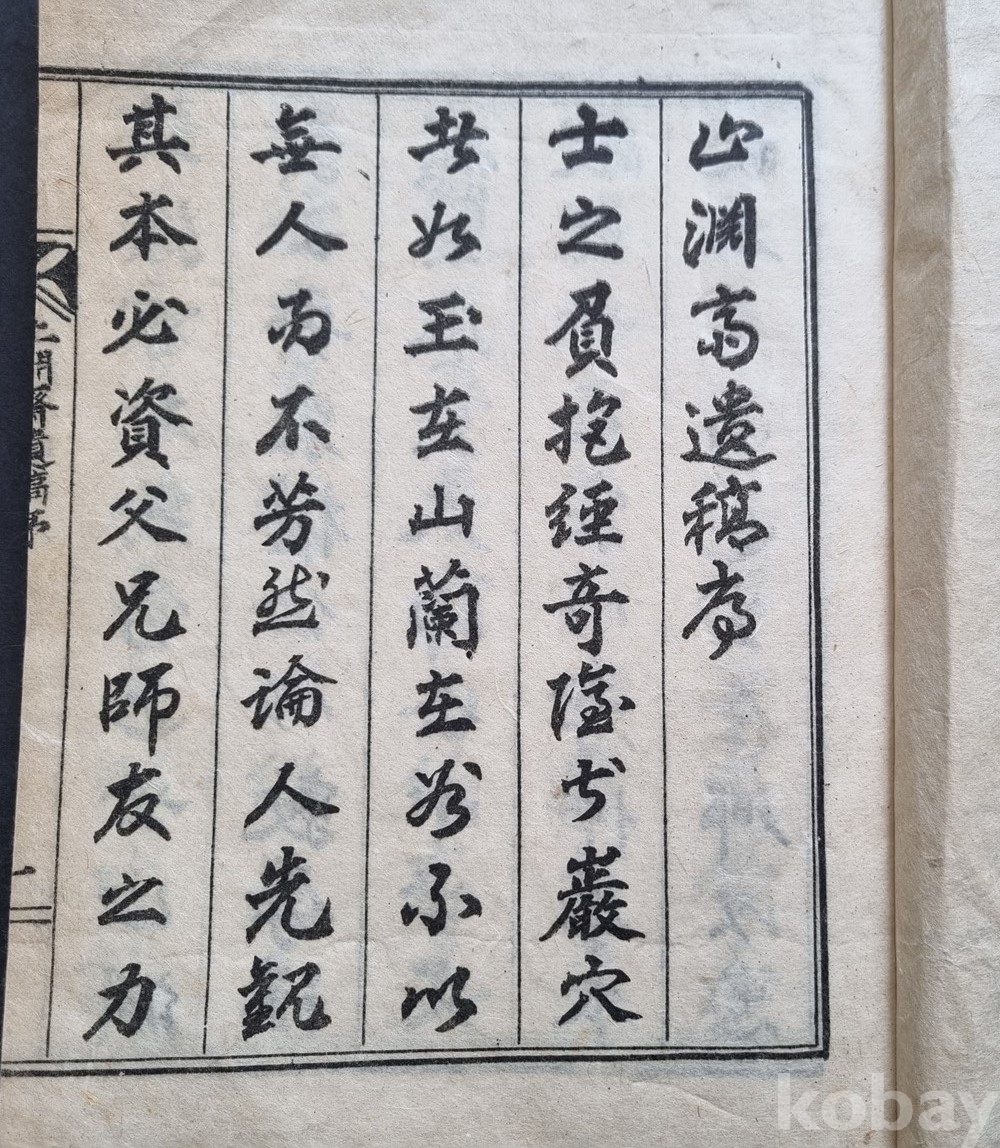 止澗齋遺稿序
士之負抱經奇隱於巖穴
者如玉在山蘭在谷不以
無人而不芳然論人先觀
其本必資父兄師友之力
齋遺稿序
一
kobay